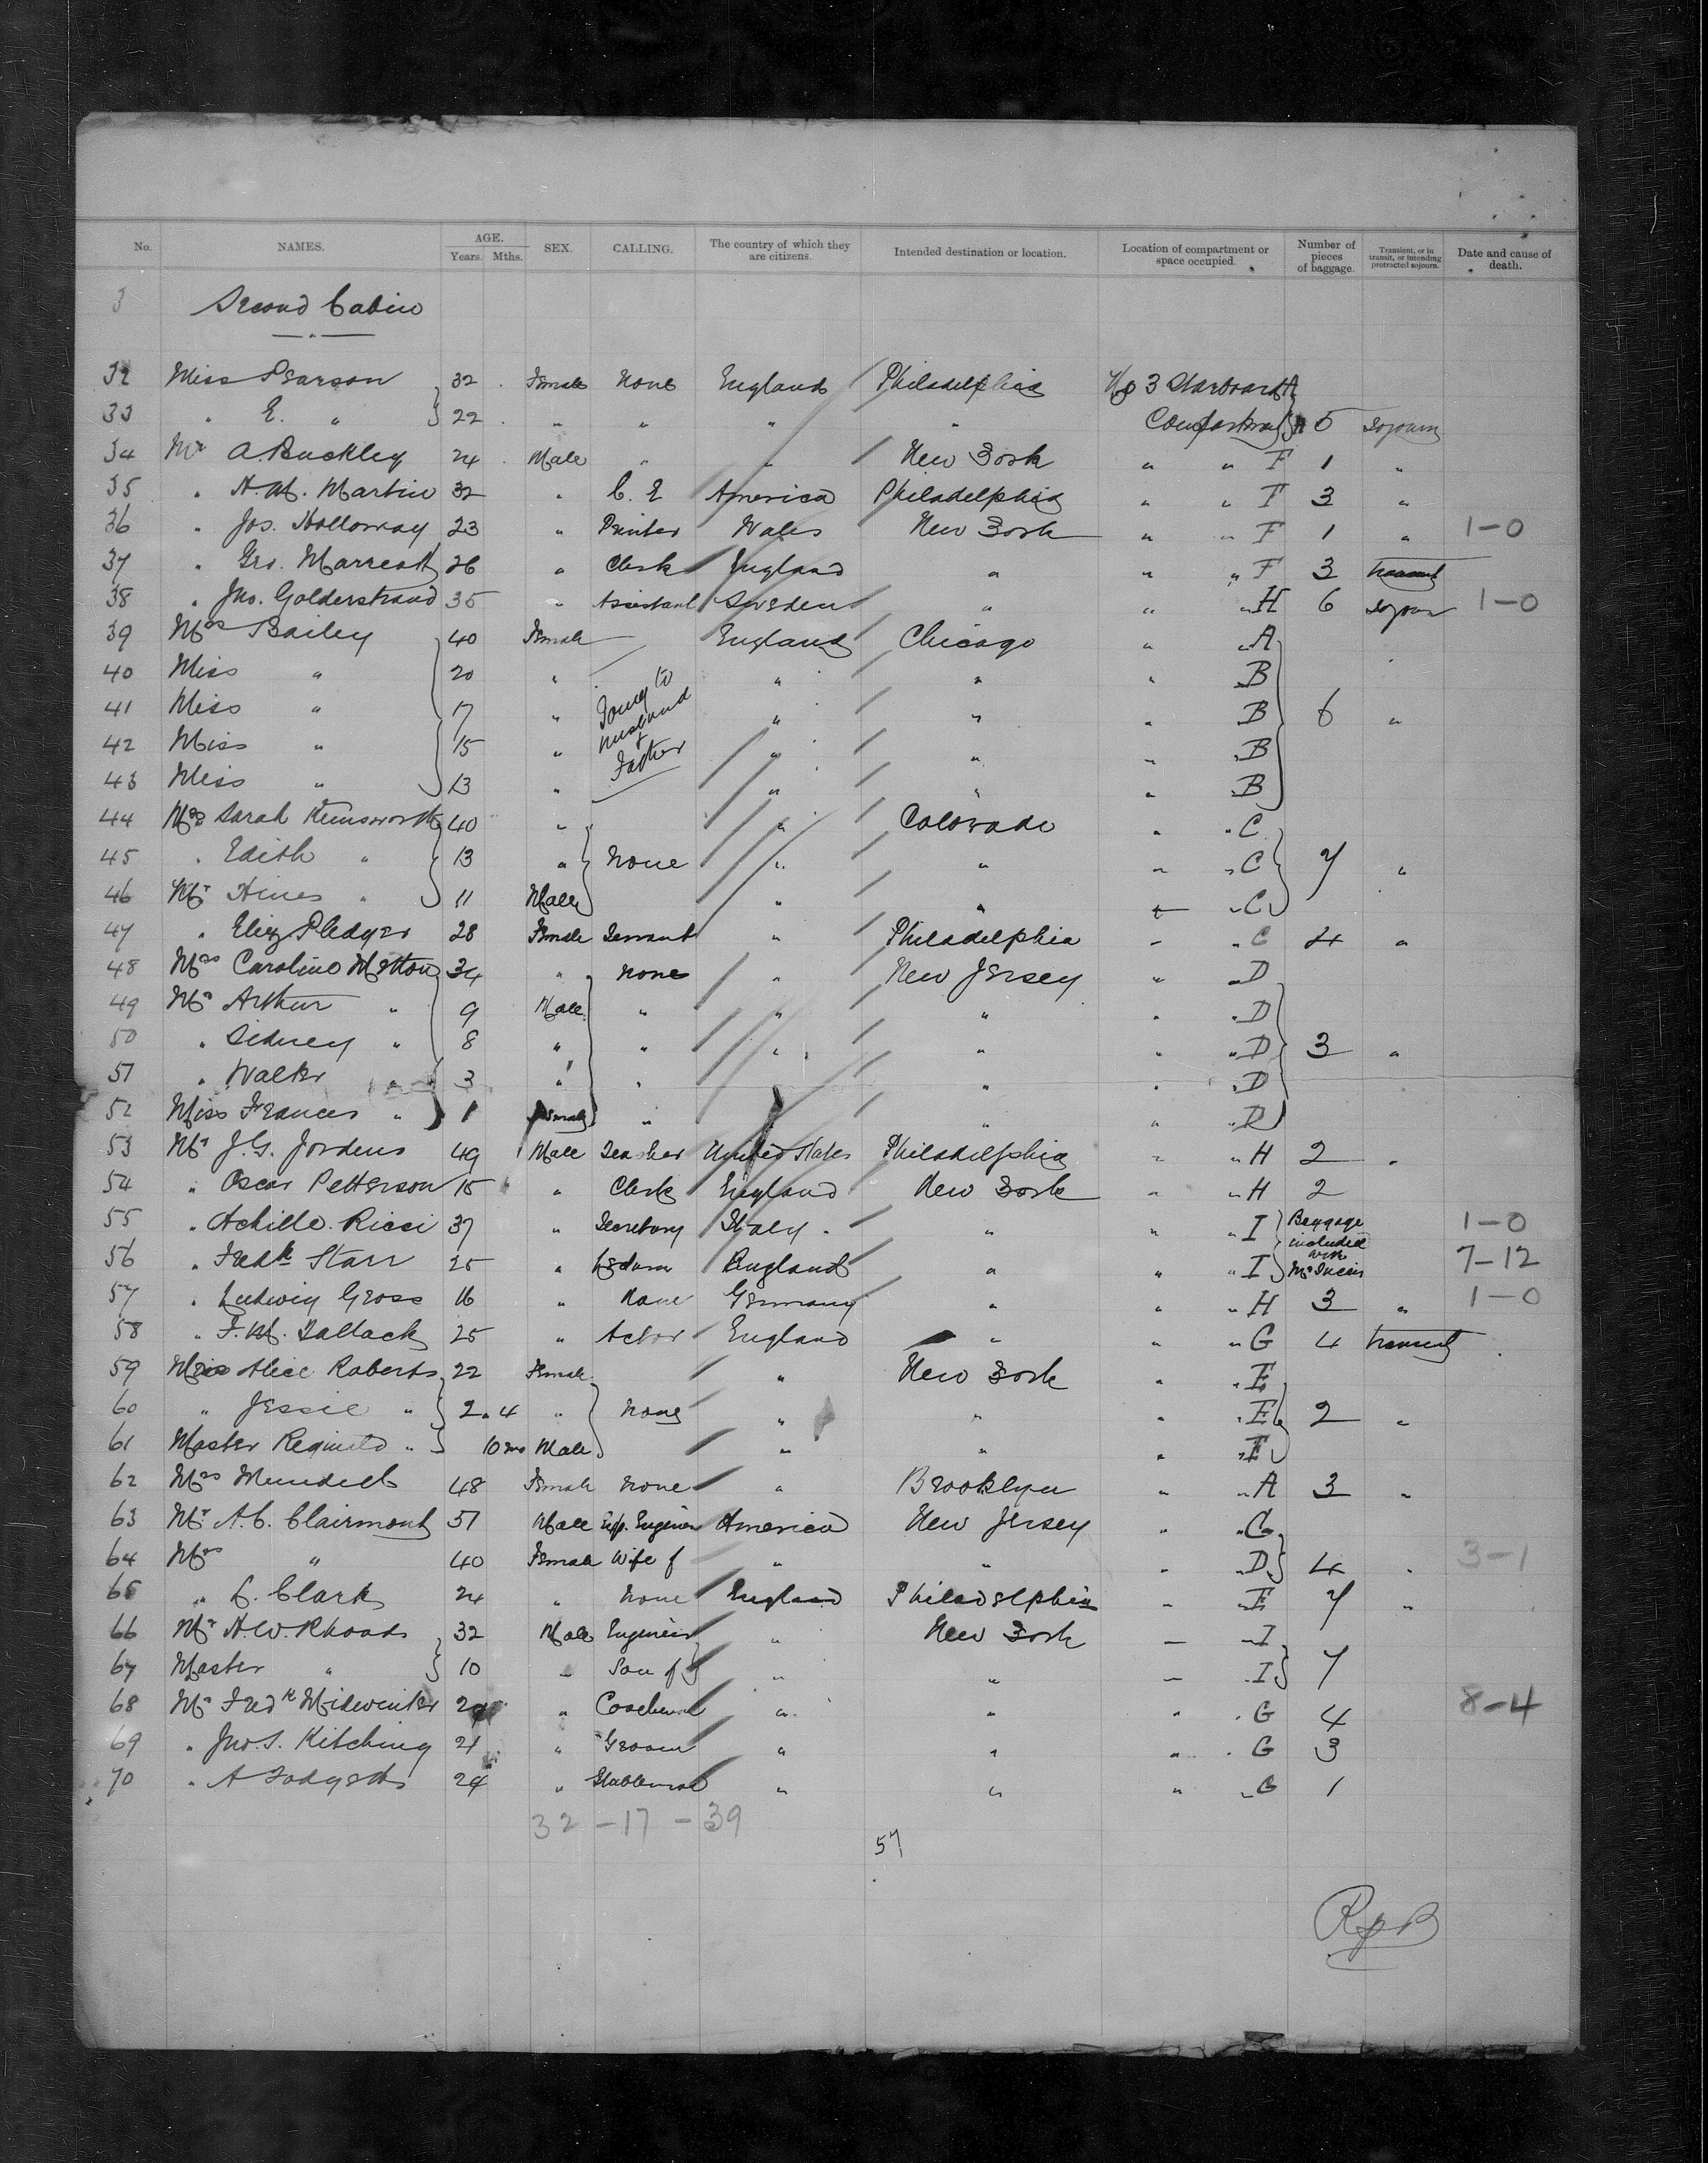 No. NAMES. AGE. Years. Mths. SEX. CALLING. The country of which they are citizens. Intended destination or location. Location of compartment or space occupied. Number of pieces of baggage. Transient, or in transit, or intending protracted sojourn. Date and cause of death.
3 Second Cabin
32 Miss Pearson 32 Female None England Philadelphia No 3 Starboard A
33 " E. " 22 " " " " Compartment 5 Sojourn
34 Mr A. Buckley 24 Male " " New York " " F 1 "
35 " H. M. Martin 32 " C. E America Philadelphia " " F 3 "
36 " Jos. Holloway 23 " Printer Wales New York " " F 1 " 1-0
37 " Geo. Marreott 26 " Clerk England " " " F 3 transit
38 " Jno. Golderstrand 35 " Assistant Sweden " " " H 6 Sojour 1-0
39 Mrs Bailey 40 Female England Chicago " " A
40 Miss " 20 " Going to " " " B
41 Miss " 17 " husband " " " B 6 "
42 Miss " 15 " + Father " " " " B
43 Miss " 13 " " " " " B
44 Mrs Sarah 40 " " Colorado " " C
45 " Edith " 13 " None " " " " C 7 "
46 Mr " 11 Male " " " " C
47 " Eliz Pledger 28 Female Servant " Philadelphia " " C 4 "
48 Mrs Caroline Metton 34 " None " New Jersey " " D
49 Mr Arthur " 9 Male " " " " " D
50 " Sidney " 8 " " " " " " D 3 "
51 " Walter " 3 " " " " " D
52 Miss Frances " 1 Female " " " " D
53 Mr J. G. Jordens 49 Male Teacher United States Philadelphia " " H 2 "
54 " Oscar Petterson 15 " Clerk England New York " " H 2
55 " Achille Ricci 37 " Secretary Italy " " " I Baggage included 1-0
56 " Fredk Starr 25 " England " " " I with Mr 7-12
57 " Ludwig Gross 16 " None Germany " " " H 3 " 1-0
58 " F. M. 25 " Actor England " " " G 4 transit
59 Miss Alice Roberts 22 Female " New York " " E
60 " Jessie " 2 . 4 " None " " " " E 2 "
61 Master Reginald " 10 mo Male " " " " E
62 Mrs Mundell 48 Female None " Brooklyn " " A 3 "
63 Mr A. C. Clairmont 51 Male Engineer America New Jersey " " C
64 Mrs " 40 Female Wife of " " " " D 4 " 3-1
65 " C. Clark 24 " None England Philadelphia " " E 7 "
66 Mr H. W. Rhoads 32 Male Engineer " New York " " I
67 Master " 10 " Son of " " " " I 7
68 Mr Fredk Midwinter 29 " Coachman " " " " G 4 8-4
69 " Jno. S. Kitching 21 " Groom " " " " G 3
70 " A 24 " Stableman " " " " G 1
32 - 17 - 39
57